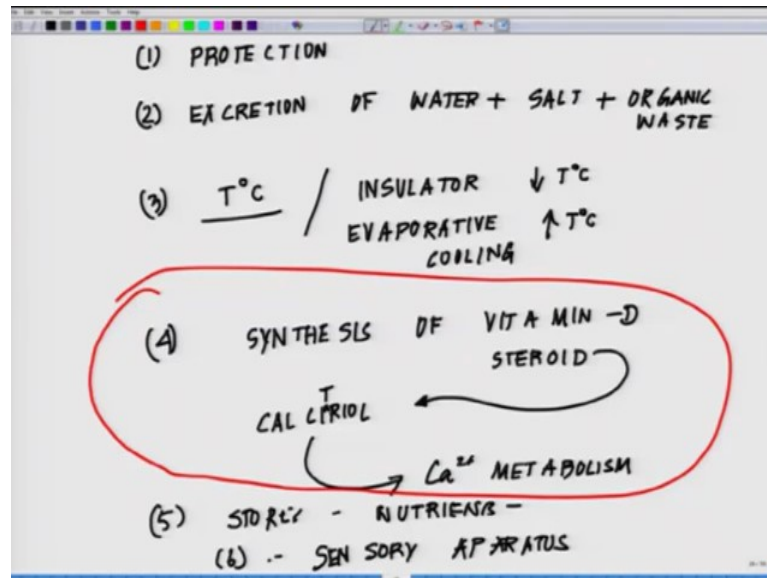 (1) PROTECTION
(2) EXCRETION OF WATER + SALT + ORGANIC
WASTE
(3) T°C / INSULATOR ↓ T°C
EVAPORATIVE ↑ T°C
COOLING
(4) SYNTHESIS OF VITAMIN -D
STEROID
T
CAL CIRIOL
Ca²⁺ METABOLISM
(5) - NUTRIENS -
(6) .- SENSORY APARATUS